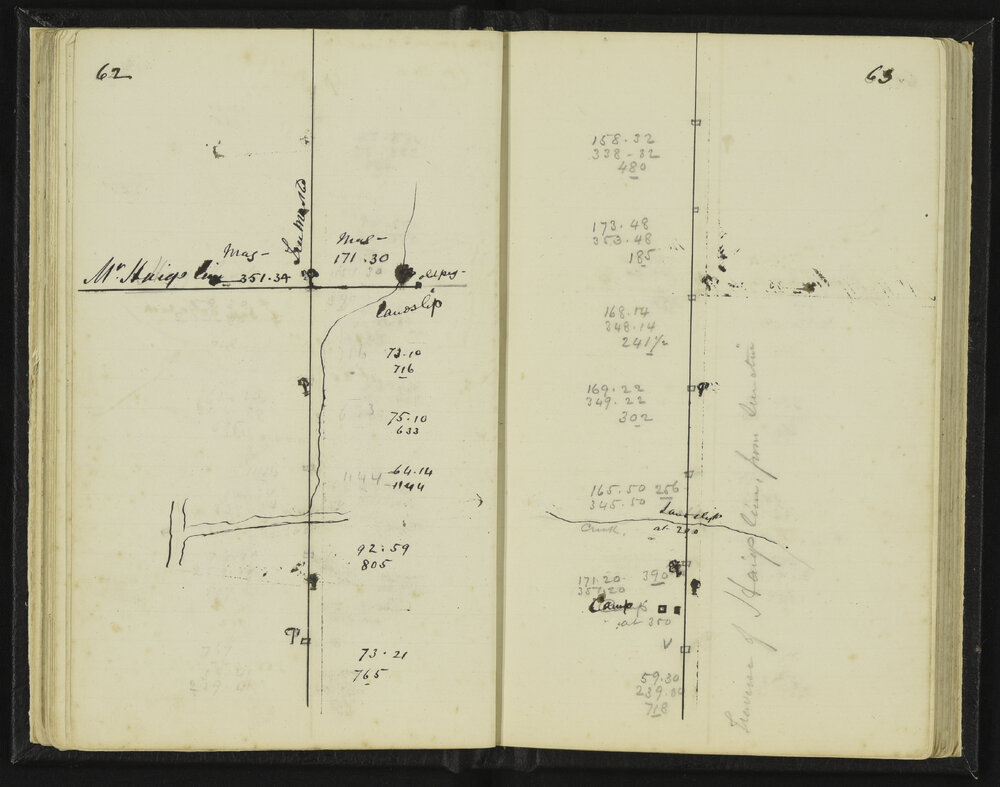 62
Mag- 
Mag-
171.30
Mr Haigs line 351.34
old peg-
Landslip
73.10
716
75.10
633
64.14
1144
1144
92:59
805
P
73.21
765
63
158.32
338-32
480
173.48
353.48
185
168.14
348.14
241 1/2
P
169.22
349.22
302
165.50 256
345.50
Landslip
Creek.
at 200
390
171.20
351.20
Camp
at 350
V
59.30
239.30
718
Traverse of Haigs line, from Junction